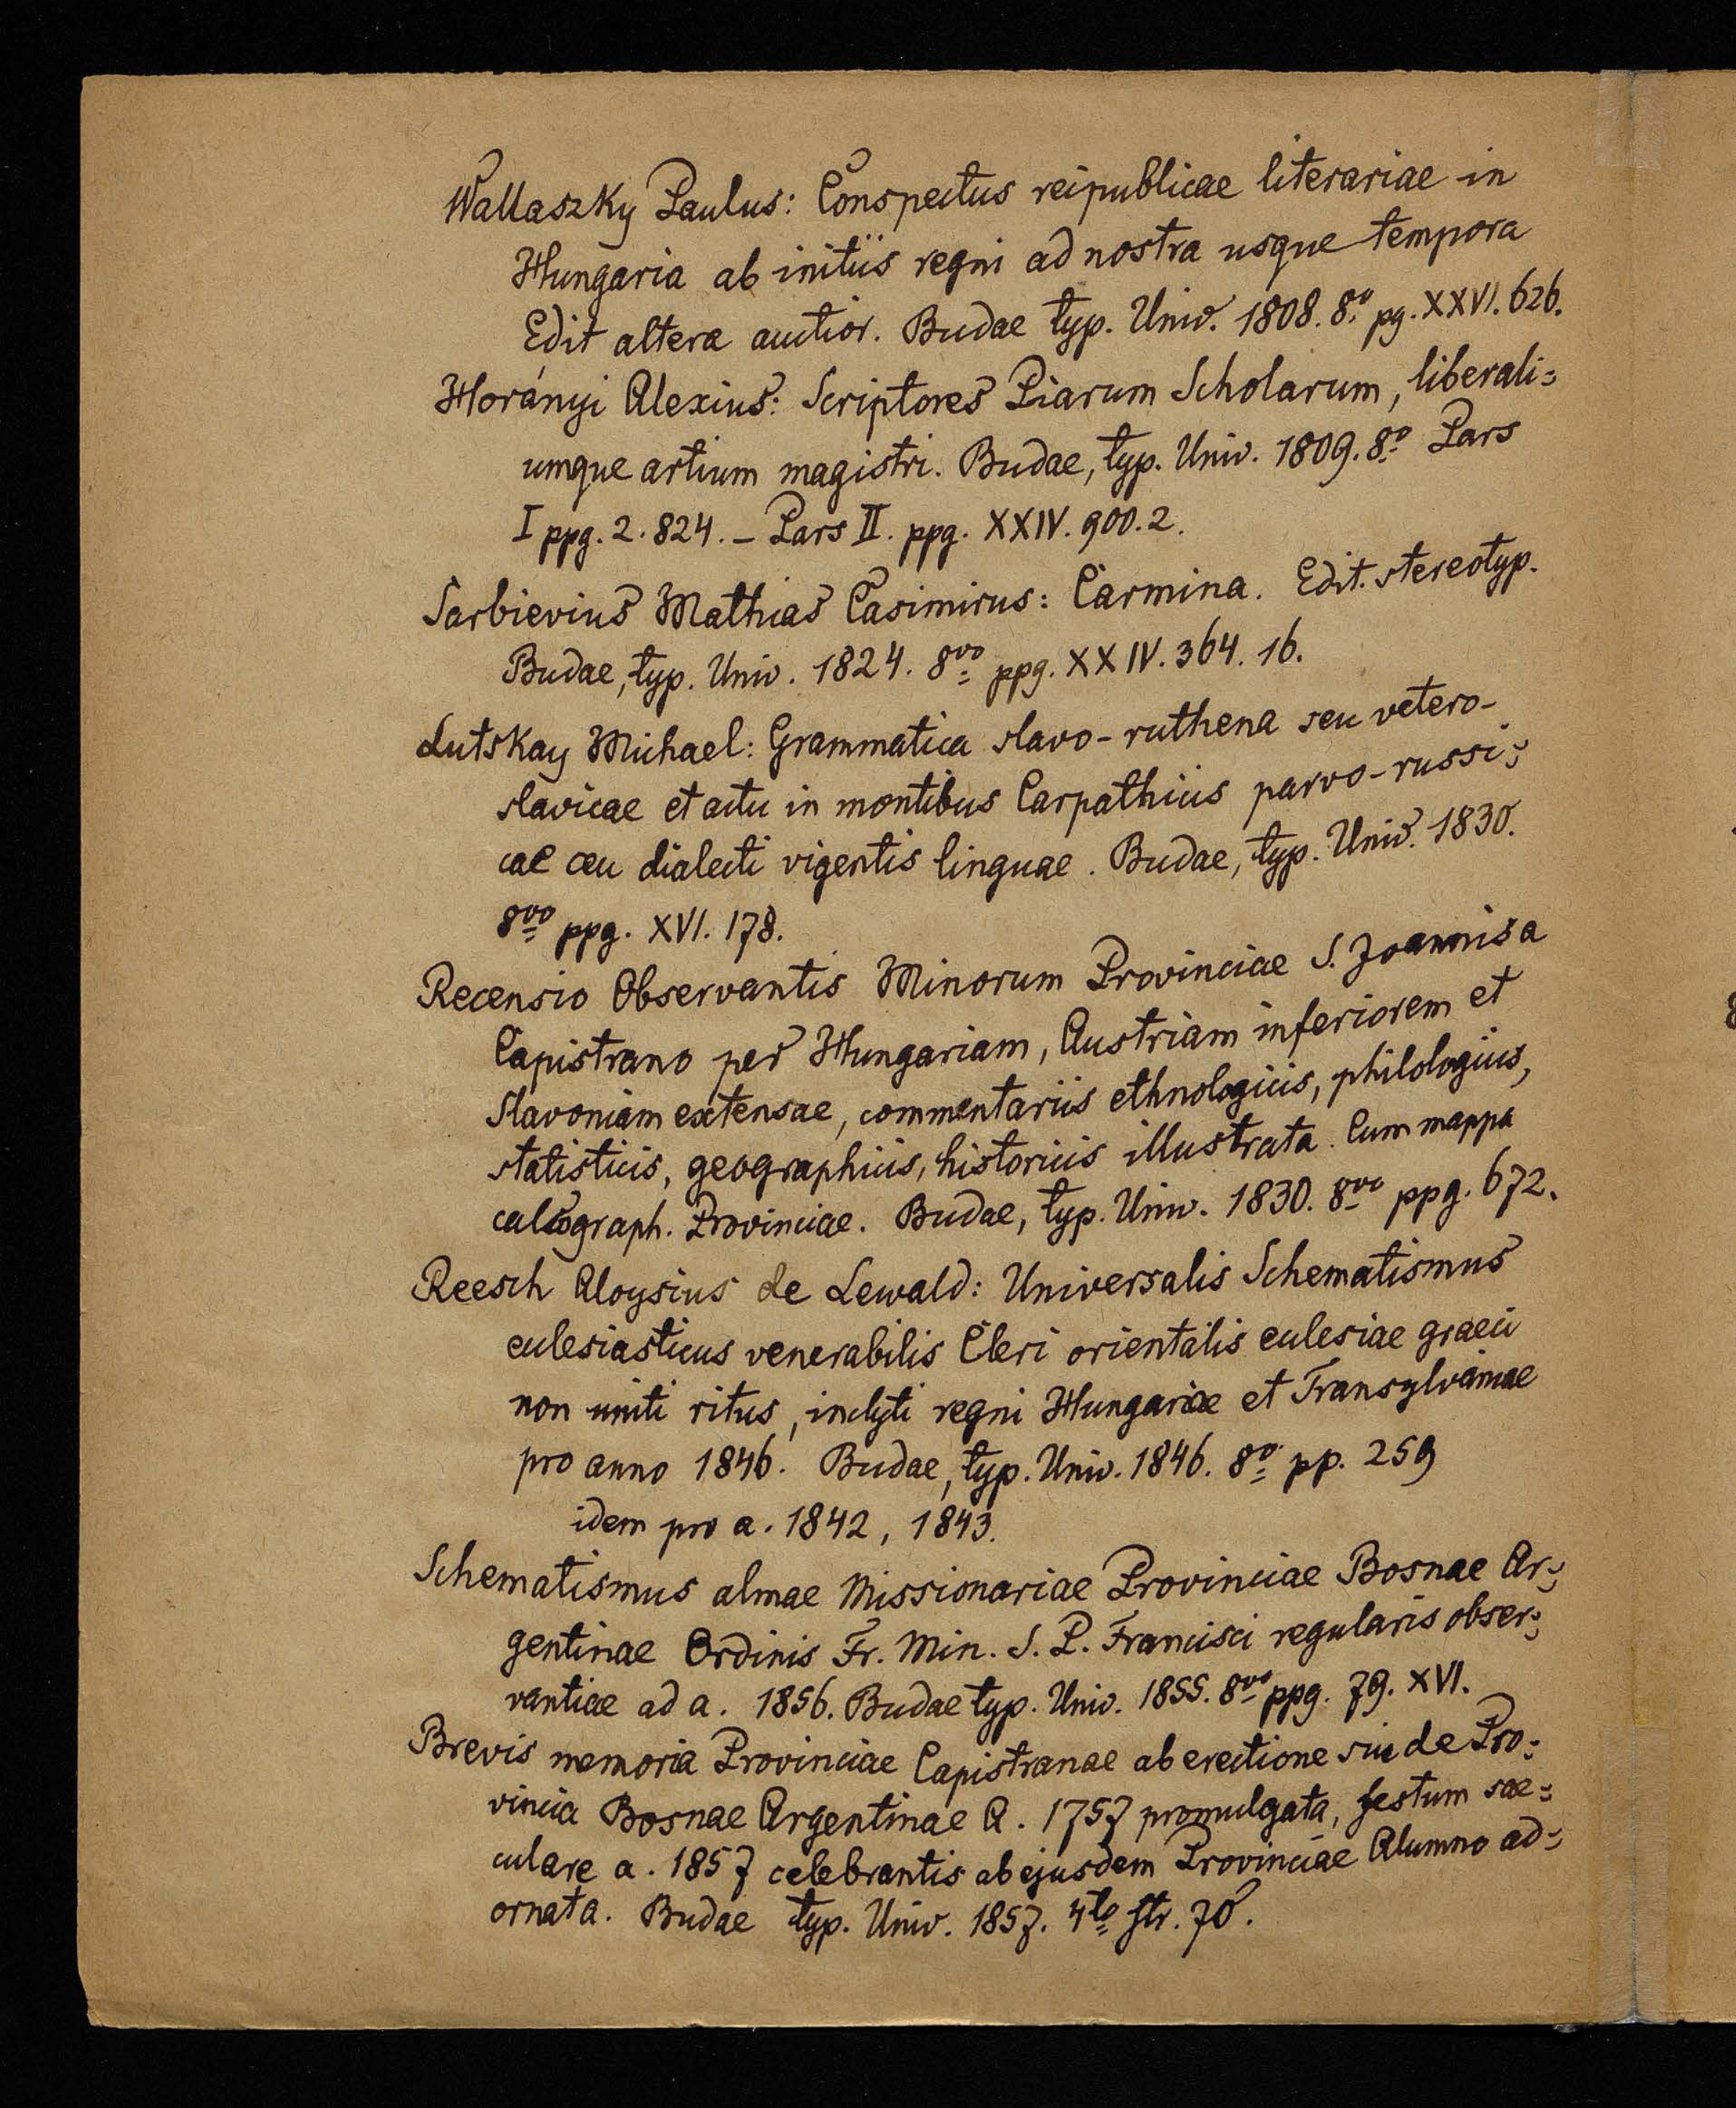 Wallaszky Paulus: Conspectus reipublicae literariae in
Hungaria ab initiis regni ad nostra usque tempora
Edit altera auctior. Budae typ. Univ. 1808. 8º pg. XXVI. 626.
Horányi Alexius: Scriptores Piarum Scholarum, liberali=
umque artium magistri. Budae, typ. Univ. 1809. 8º Pars
I ppg. 2. 824. – Pars II. ppg. XXIV. 900. 2.
Sarbievius Mathias Casimirus: Carmina. Edit. stereotyp.
Budae, typ. Univ. 1824. 8vo ppg. XXIV. 364. 16.
Lutskay Michael: Grammatica slavo-ruthena seu vetero-
slavicae et actu in montibus Carpathicis parvo-russi=
cae ceu dialecti vigentis linguae. Budae, typ. Univ. 1830.
8vo ppg. XVI. 178.
Recensio Observantis Minorum Provinciae S. Joannis a
Capistrano per Hungariam, Austriam inferiorem et
Slavoniam extensae, commentariis ethnologicis, philologicis,
statisticis, geographicis, historicis illustrata. Cum mappa
calcograph. Provinciae. Budae, typ. Univ. 1830. 8vo ppg. 672.
Reesch Aloysius de Lewald: Universalis Schematismus
ecclesiasticus venerabilis Cleri orientalis ecclesiae graeci
non uniti ritus, inclyti regni Hungariae et Transylvaniae
pro anno 1846. Budae, typ. Univ. 1846. 8º pp. 259
idem pro a. 1842, 1843.
Schematismus almae Missionariae Provinciae Bosnae Ar=
gentinae Ordinis Fr. Min. S. P. Francisci regularis obser=
vantiae ad a. 1856. Budae typ. Univ. 1855. 8vo ppg. 79. XVI.
Brevis memoria Provinciae Capistranae ab erectione sui de Pro=
vincia Bosnae Argentinae A. 1757 promulgata, festum sae=
culare a. 1857 celebrantis ab ejusdem Provinciae Alumno ad=
ornata. Budae typ. Univ. 1857. 4to str. 70.